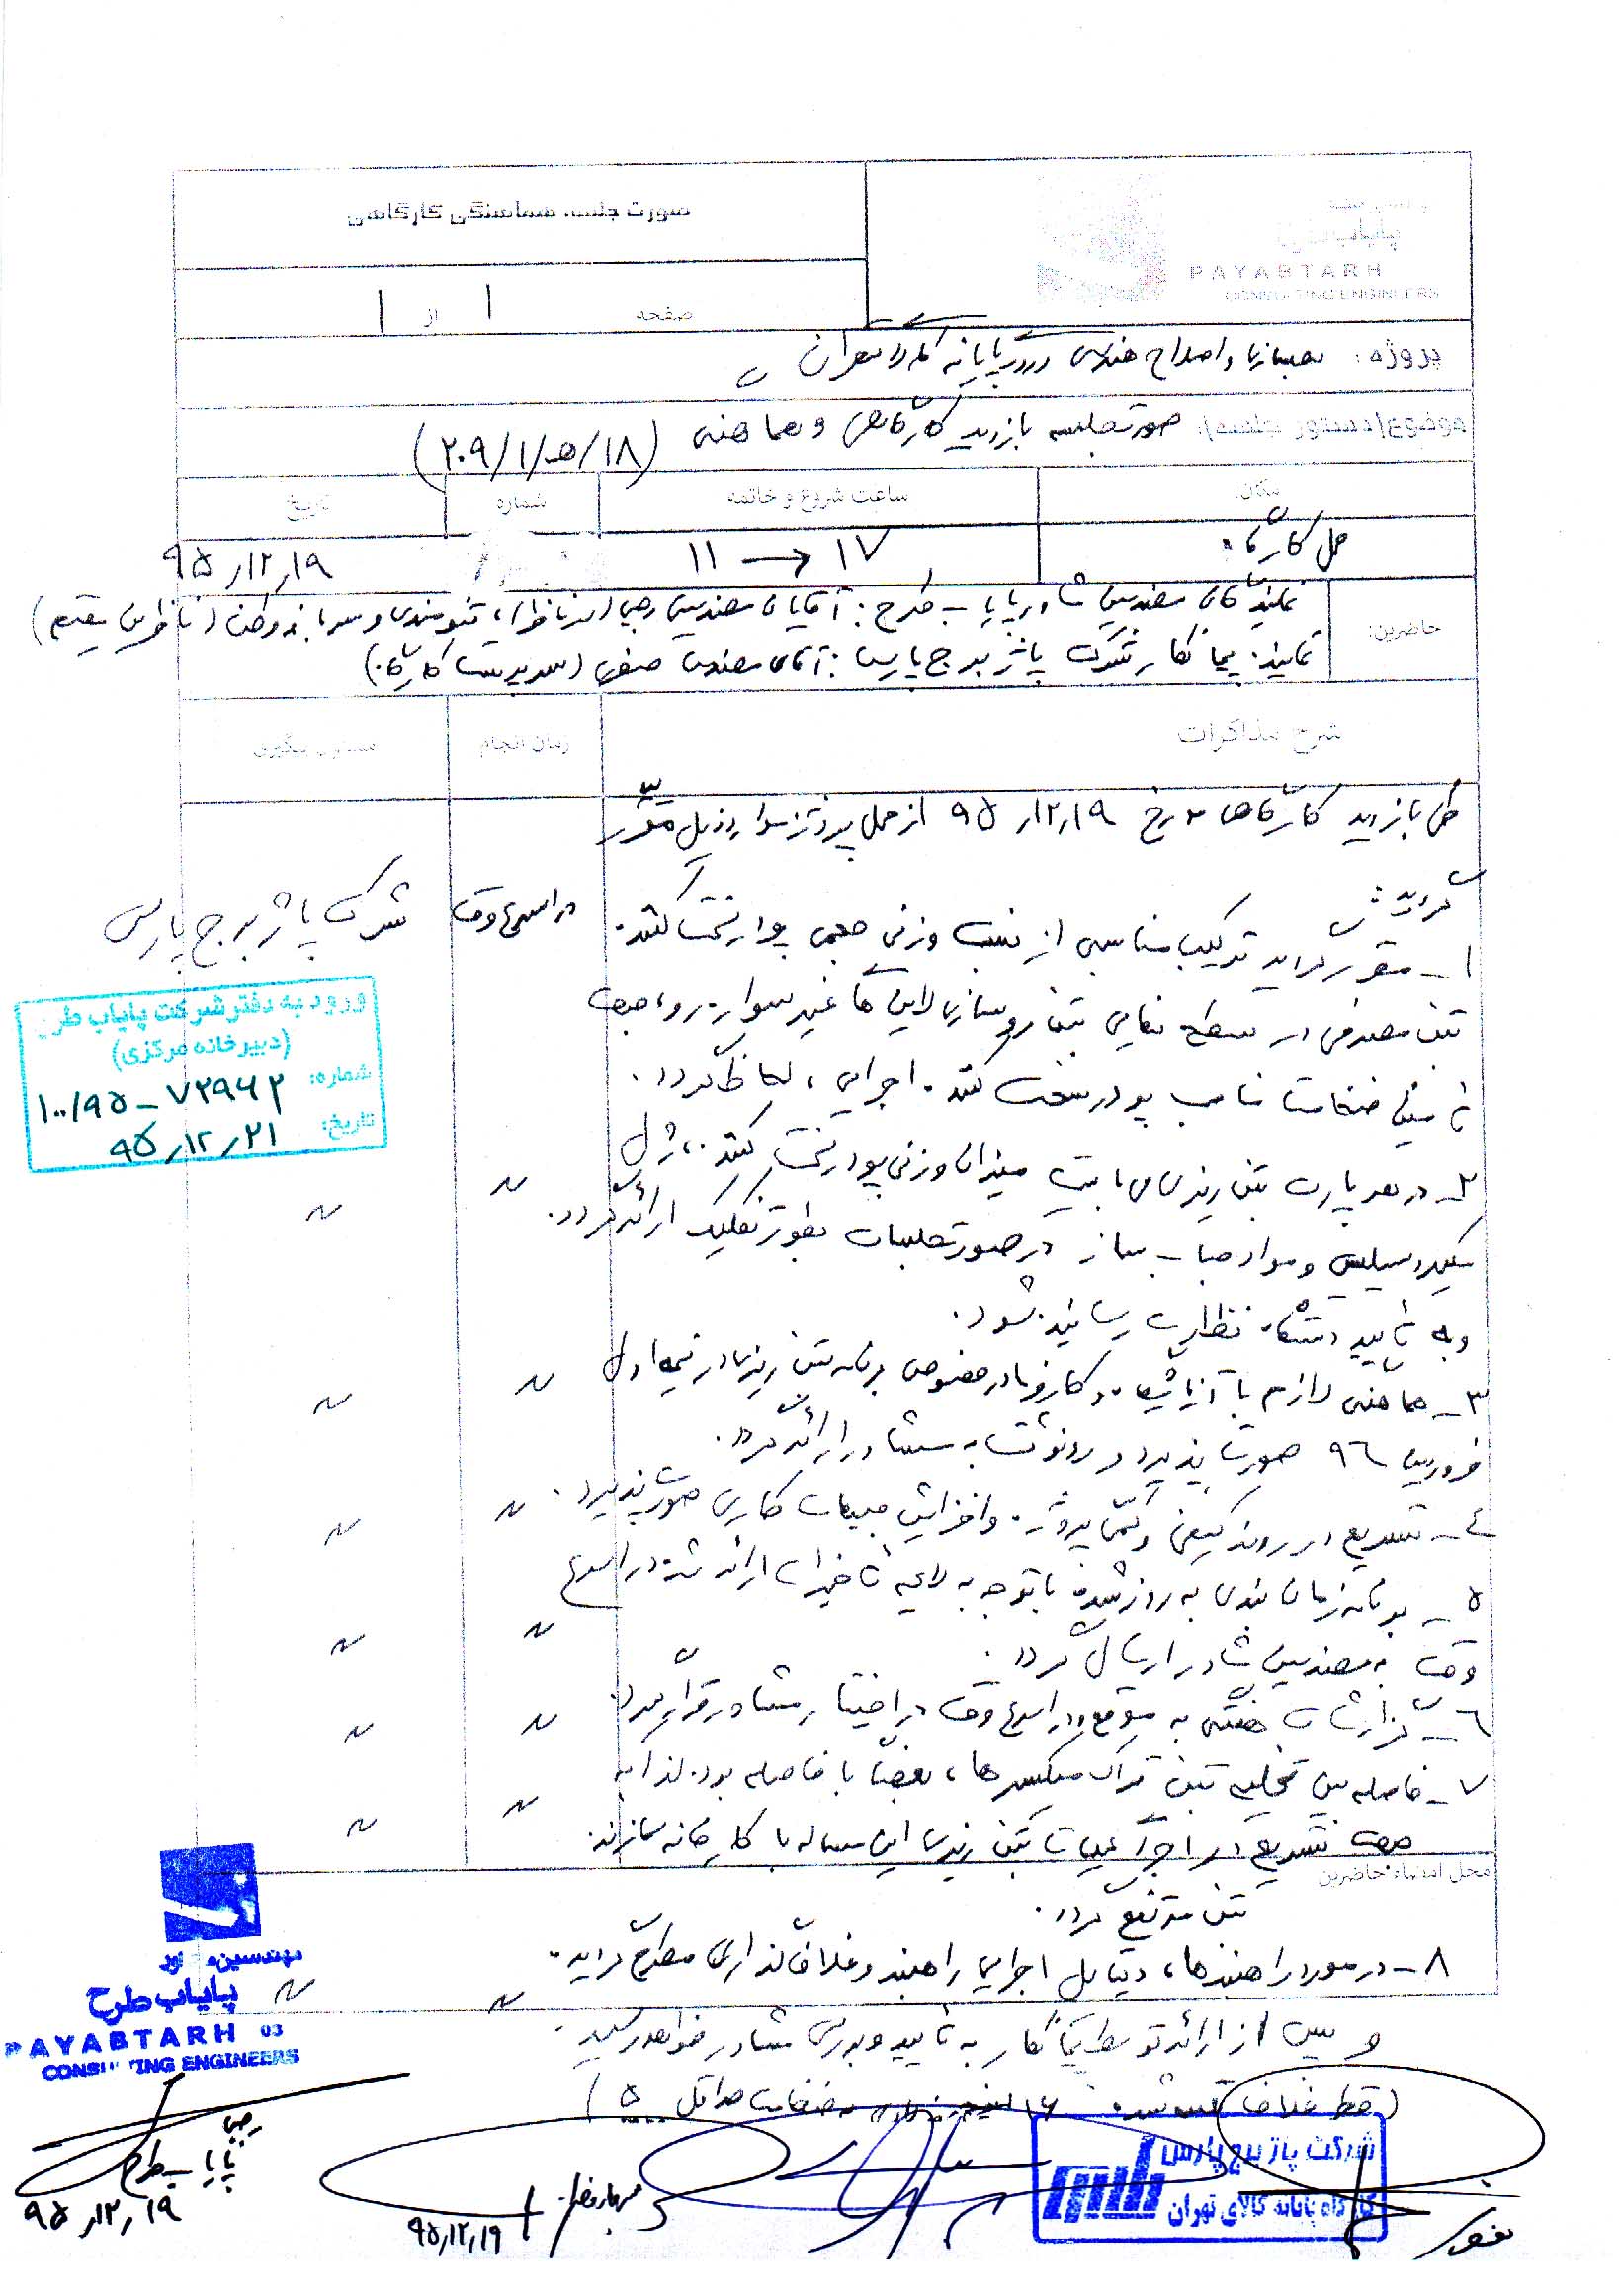 صورت جلسه هماهنگی کارگاهی
پایاب طرح
PAYABTARH
CONSULTING ENGINEERS
صفحه ۱ از ۱
پروژه: بهسازی و اصلاح هندسی ورودی پایانه کالای تهران
موضوع/دستور جلسه: صورتجلسه بازدید کارگاهی و هماهنگی (۲۰۹/۱/هـ/۱۸)
مکان: ساعت شروع و خاتمه شماره تاریخ
محل کارگاه ۱۱ → ۱۷ ۹۵/۱۲/۱۹
حاضرین: نمایندگان مهندسین مشاور پایاب طرح: آقایان مهندسین رجبی (سرناظر)، تنومندی و (ناظرین مقیم)
نماینده پیمانکار شرکت پاژ برج پارس: آقای مهندس صفوی (سرپرست کارگاه)
شرح مذاکرات زمان انجام مسئول پیگیری
طی بازدید کارگاهی مورخ ۹۵/۱۲/۱۹ از محل پروژه موارد ذیل مقرر
گردید:
۱- مقرر گردید ترکیب مناسبی از نسب وزنی حجمی پودر سخت کننده در اسرع وقت شرکت پاژ برج پارس
بتن مصرفی در سطح نهایی بتن روسازی لاین های غیر سواره رو، جهت
تأمین ضخامت مناسب پودر سخت کننده اجرایی، لحاظ گردد.
۲- در هر پارت بتن ریزی می بایست میزان وزنی پودر سخت کننده، ژل
میکروسیلیس و مواد حباب ساز در صورتجلسات بطور تفکیک ارائه گردد.
و به تأیید دستگاه نظارت رسانیده شود.
۳- هماهنگی لازم با آزمایشگاه و کارفرما در خصوص برنامه بتن ریزی در نیمه اول
فروردین ۹۶ صورت پذیرد و رونوشت به مشاور ارائه گردد.
۴- تسریع در روند کیفی و کمی پروژه و افزایش جبهات کاری صورت پذیرد.
۵- برنامه زمان بندی به روز شده با توجه به لایحه تأخیرات ارائه شده در اسرع
وقت به مهندسین مشاور ارسال گردد.
۶- گزارشات هفتگی به موقع و در اسرع وقت در اختیار مشاور قرار گیرد.
۷- فاصله بین تخلیه بتن تراک میکسرها، بعضاً با فاصله بود. لذا به
جهت تسریع در اجرای عملیات بتن ریزی این مساله با کارخانه سازنده
محل امضاء حاضرین
بتن مرتفع گردد.
۸- در مورد راهبندها، دیتایل اجرایی راهبند و غلاف گذاری مطرح گردید.
و پس از ارائه توسط پیمانکار به تأیید و بررسی مشاور خواهد رسید.
(قطر غلاف ۱۶ به ضخامت حداقل ۵)
ورود به دفتر شرکت پایاب طرح
(دبیرخانه مرکزی)
شماره: ۱۰۰/۹۵-۷۲۹۶۲
تاریخ: ۹۵/۱۲/۲۱
مهندسین مشاور
پایاب طرح
PAYABTARH 03
CONSULTING ENGINEERS
رجبی
پایاب طرح
۹۵/۱۲/۱۹
۹۵/۱۲/۱۹
شرکت پاژ برج پارس
کارگاه پایانه کالای تهران
صفوی